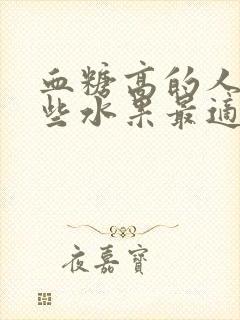 血糖高的人
些水果最适
夜嘉寶